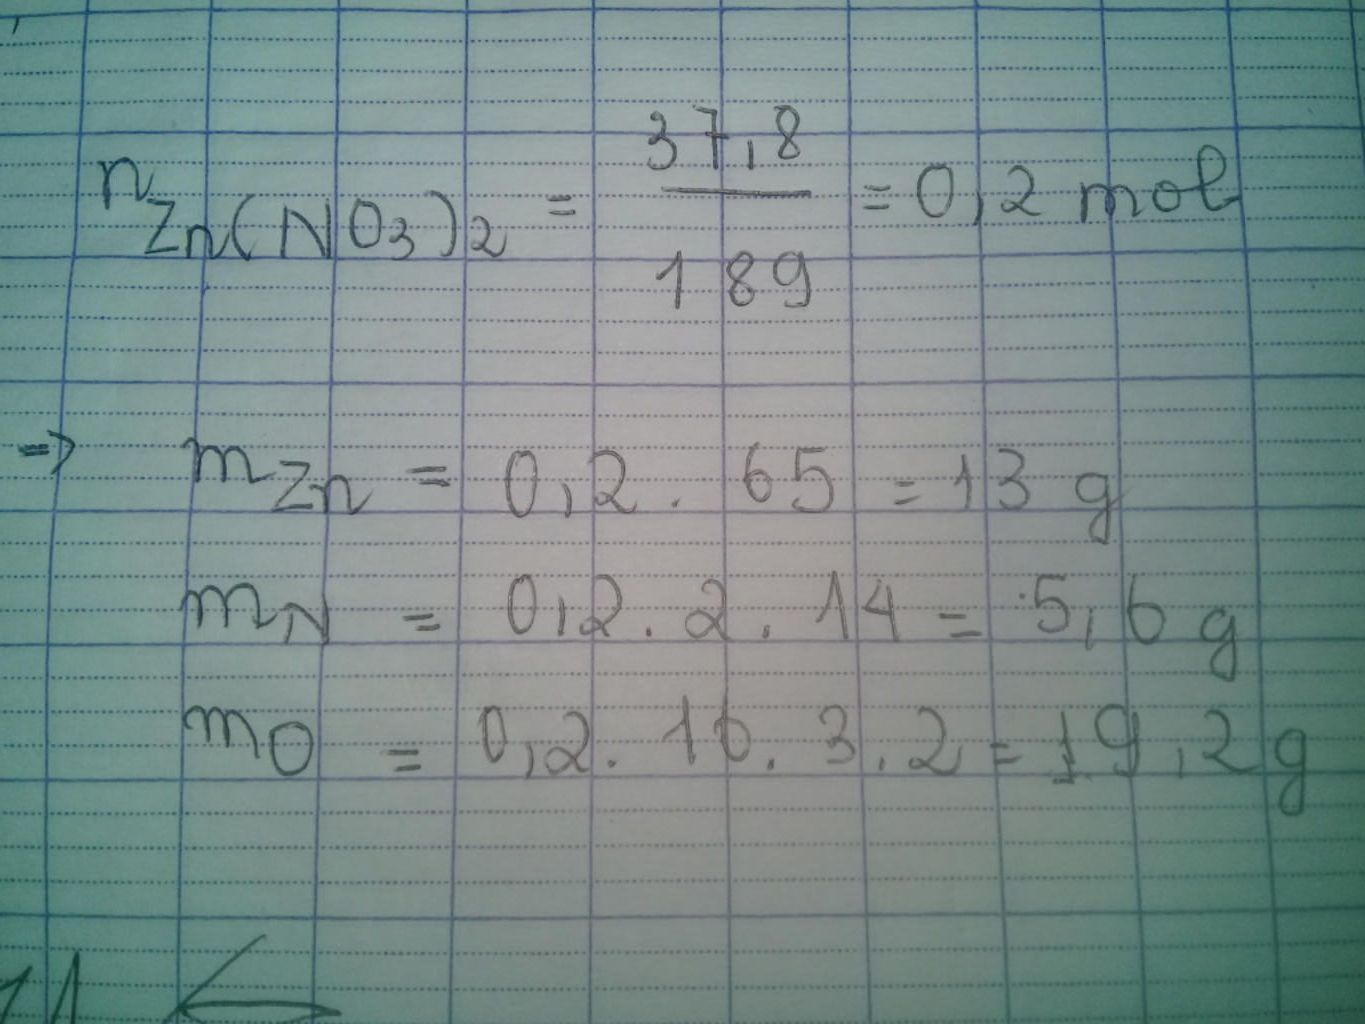 n Zn(NO3)2 = 37,8 / 189 = 0,2 mol
=> m Zn = 0,2 . 65 = 13 g
m N = 0,2 . 2 . 14 = 5,6 g
m O = 0,2 . 16 . 3 . 2 = 19,2 g